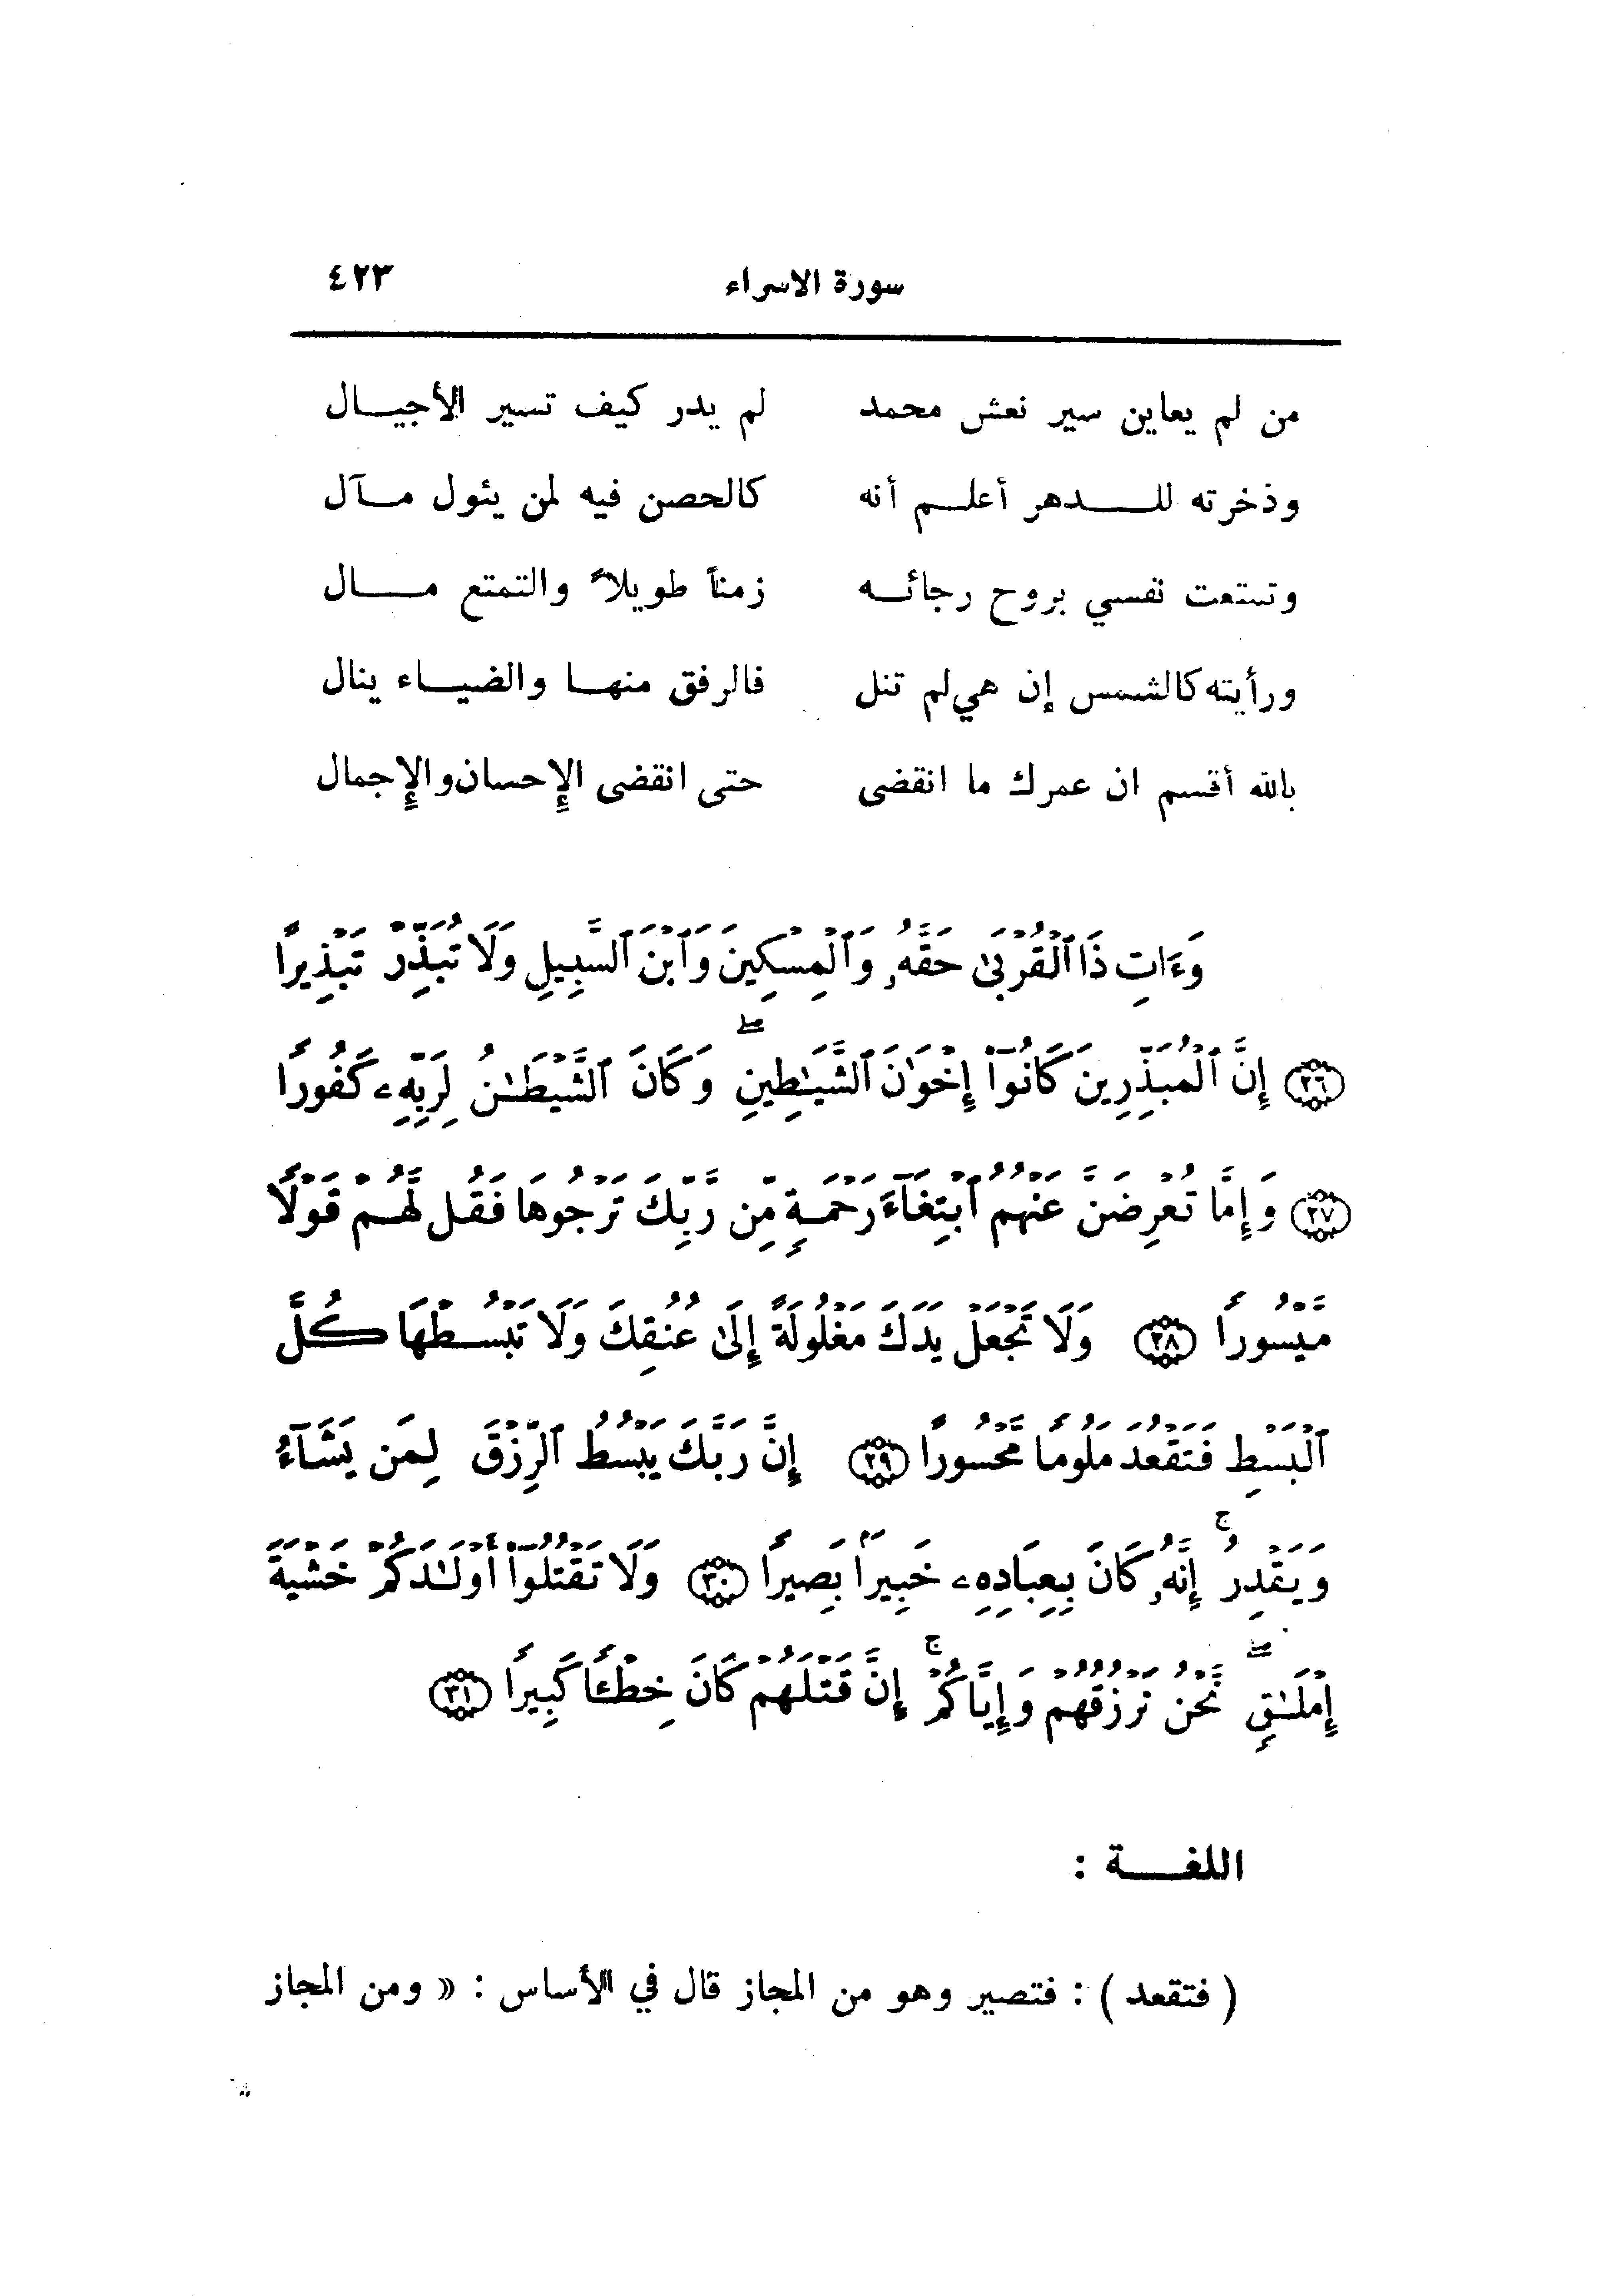 سورة الاسراء ٤٢٣
من لم يعاين سير نعش محمد لم يدر كيف تسير الأجيــال
وذخرته للــــدهر أعلــم أنه كالحصن فيه لمن يئول مــآل
وتمتعت نفسي بروح رجائــه زمناً طويلاً والتمتع مــــال
ورأيته كالشمس إن هي لم تنل فالرفق منهــا والضيــاء ينال
بالله أقسم ان عمرك ما انقضى حتى انقضى الإحسان والإجمال
وَءَاتِ ذَا ٱلْقُرْبَىٰ حَقَّهُۥ وَٱلْمِسْكِينَ وَٱبْنَ ٱلسَّبِيلِ وَلَا تُبَذِّرْ تَبْذِيرًا
﴿٢٦﴾ إِنَّ ٱلْمُبَذِّرِينَ كَانُوٓا۟ إِخْوَٰنَ ٱلشَّيَـٰطِينِ ۖ وَكَانَ ٱلشَّيْطَـٰنُ لِرَبِّهِۦ كَفُورًا
﴿٢٧﴾ وَإِمَّا تُعْرِضَنَّ عَنْهُمُ ٱبْتِغَآءَ رَحْمَةٍ مِّن رَّبِّكَ تَرْجُوهَا فَقُل لَّهُمْ قَوْلًا
مَّيْسُورًا ﴿٢٨﴾ وَلَا تَجْعَلْ يَدَكَ مَغْلُولَةً إِلَىٰ عُنُقِكَ وَلَا تَبْسُطْهَا كُلَّ
ٱلْبَسْطِ فَتَقْعُدَ مَلُومًا مَّحْسُورًا ﴿٢٩﴾ إِنَّ رَبَّكَ يَبْسُطُ ٱلرِّزْقَ لِمَن يَشَآءُ
وَيَقْدِرُ ۚ إِنَّهُۥ كَانَ بِعِبَادِهِۦ خَبِيرًۢا بَصِيرًا ﴿٣٠﴾ وَلَا تَقْتُلُوٓا۟ أَوْلَـٰدَكُمْ خَشْيَةَ
إِمْلَـٰقٍ ۖ نَّحْنُ نَرْزُقُهُمْ وَإِيَّاكُمْ ۚ إِنَّ قَتْلَهُمْ كَانَ خِطْـًٔا كَبِيرًا ﴿٣١﴾
اللغــــة :
( فتقعد ) : فتصير وهو من المجاز قال في الأساس : « ومن المجاز